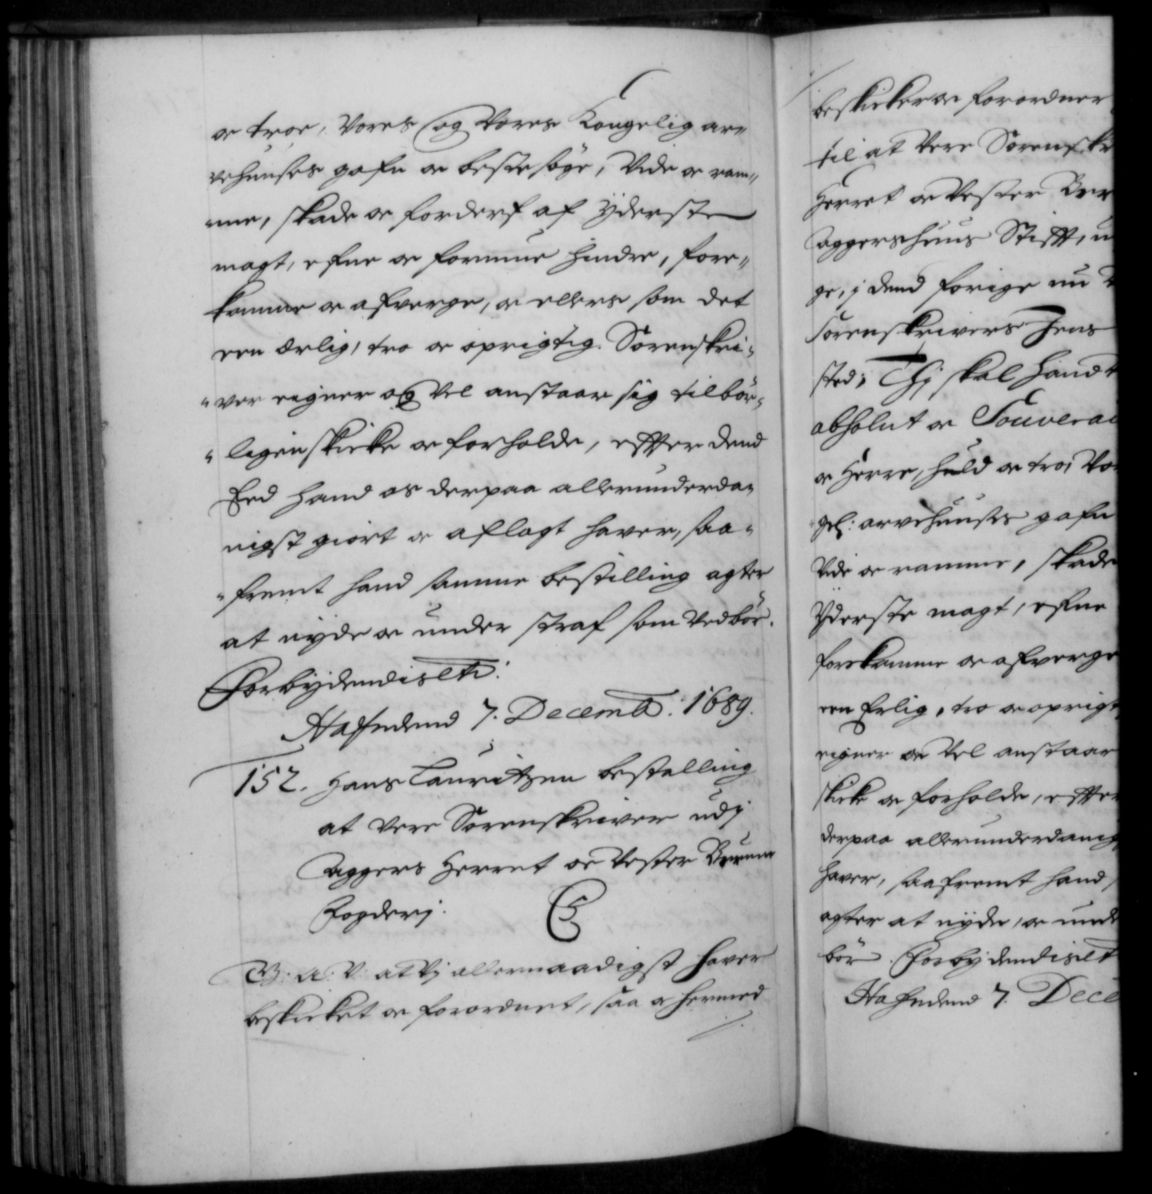 oc troe, Vores og Vores Kongelig ar=
vehuuses gafn oc beste søge, Vide oc ram=
me, skade oc forderf af Yderste
magt, efne oc formue hindre, fore=
komme oc afverge, oc ellers som det
een ærlig, tro oc oprigtig Sorenskri=
=ver eigner og vel anstaar sig tilbør=
=ligen skicke oc forholde, efter dend
Eed hand os derpaa allerunderda=
nigst giort oc aflagt haver, saa=
=fremt hand samme bestilling agter
at nyde oc under straf som Vedbør.
Forbydendis etc:
Haffn dend 7. Decemb: 1689.
152. Hans Lauritzen bestalling
at vere Sorenskriver udj
Aggers Herret oc Vester Barum
Fogderj.
G: A: V: at Vj allernaadigst haver
beskicket oc forordnet, saa oc hermed
beskicker oc forordner
til at Vere Sorenskr
Herret oc Vester Bar
Aggershuus Stift, u
ge, j dend forige nu
Sorenskrivers Jens
sted; Thj skal hand
absolut oc Souverai
oc Herre, huld oc tro, Vo
gel: arvehuuses gafn
Vide oc ramme, skade
Yderste magt, efne
forekomme oc afverge
een Erlig, tro oc oprigt
eigner oc Vel anstaar
skicke oc forholde, efter
derpaa allerunderdanig
haver, saafremt hand
agter at nyde, oc unde
bør. Forbydendis etc
Haffn dend 7. Dece